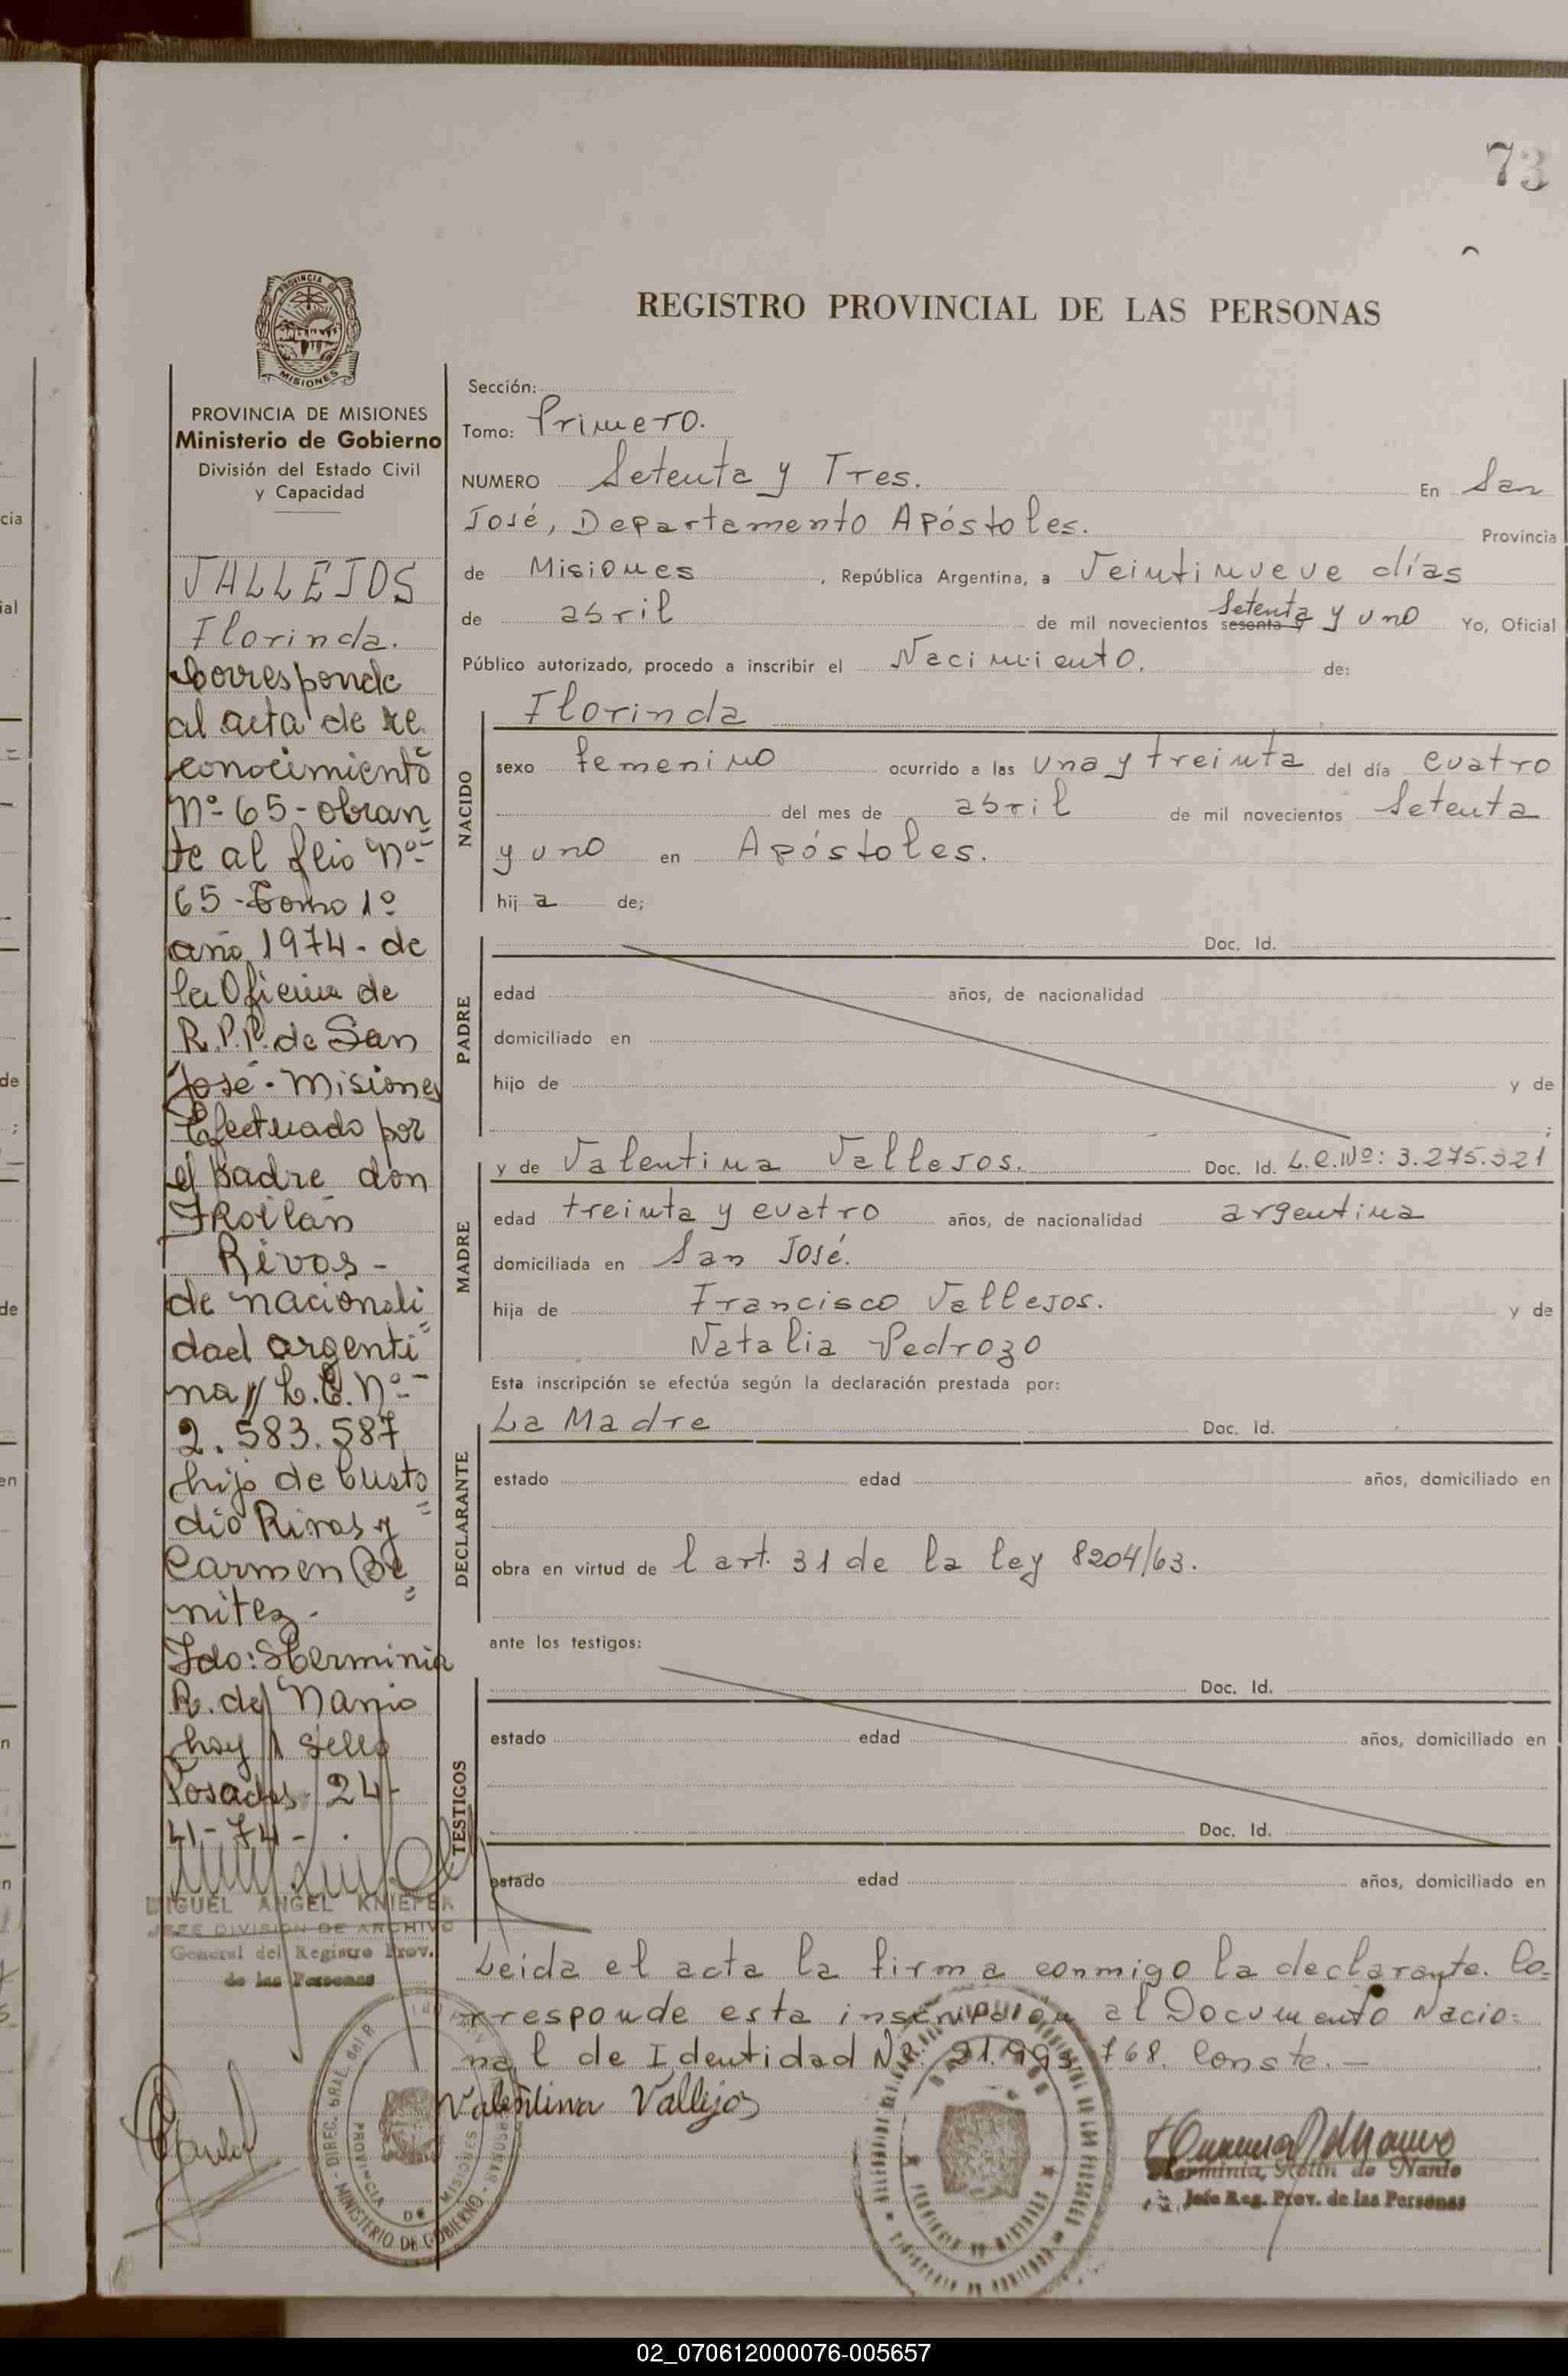 73
REGISTRO PROVINCIAL DE LAS PERSONAS
PROVINCIA DE
MISIONES
PROVINCIA DE MISIONES
Ministerio de Gobierno
División del Estado Civil
y Capacidad
VALLEJOS
Florinda.
Corresponde
al acta de re
conocimiento
Nº 65 - obran
te al flio Nº
65 - Tomo 1º
año 1974 - de
la Oficina de
R.P.P. de San
José - Misiones
Efectuado por
el padre don
Froilán
Rivas -
de nacionali
dad argenti
na // L.E. Nº
2.583.587
hijo de Custo
dio Rivas y
Carmen Be
nitez -
Fdo: Herminia
R. de Nanio
hay 1 sello
Posadas - 24 -
-74 -
MIGUEL ANGEL KNIEFER
JEFE DIVISION DE ARCHIVO
General del Registro Prov.
de las Personas
Sección:
Tomo: Primero.
NUMERO Setenta y Tres. En San
José, Departamento Apóstoles. Provincia
de Misiones, República Argentina, a Veintinueve días
de abril de mil novecientos sesenta y Setenta y uno Yo, Oficial
Público autorizado, procedo a inscribir el Nacimiento. de:
NACIDO
Florinda
sexo femenino ocurrido a las una y treinta del día cuatro
del mes de abril de mil novecientos Setenta
y uno en Apóstoles.
hija de;
PADRE
Doc. Id.
edad años, de nacionalidad
domiciliado en
hijo de y de
;
MADRE
y de Valentina Vallejos. Doc. Id. L.C.Nº: 3.275.321
edad treinta y cuatro años, de nacionalidad argentina
domiciliada en San José.
hija de Francisco Vallejos. y de
Natalia Pedrozo
Esta inscripción se efectúa según la declaración prestada por:
DECLARANTE
La Madre Doc. Id.
estado edad años, domiciliado en
obra en virtud de l art. 31 de la ley 8204/63.
ante los testigos:
TESTIGOS
Doc. Id.
estado edad años, domiciliado en
Doc. Id.
estado edad años, domiciliado en
Leida el acta la firma conmigo la declarante. Co=
rresponde esta inscripción al Documento Nacio=
nal de Identidad Nº: 768. Conste. -
Valentina Vallejos
DIREC. GRAL. del R.
PROVINCIA DE MISIONES
MINISTERIO DE GOBIERNO
Herminia, Rolin de Nanio
Jefe Reg. Prov. de las Personas
cia
ial
de
de
en
n
n
02_070612000076-005657